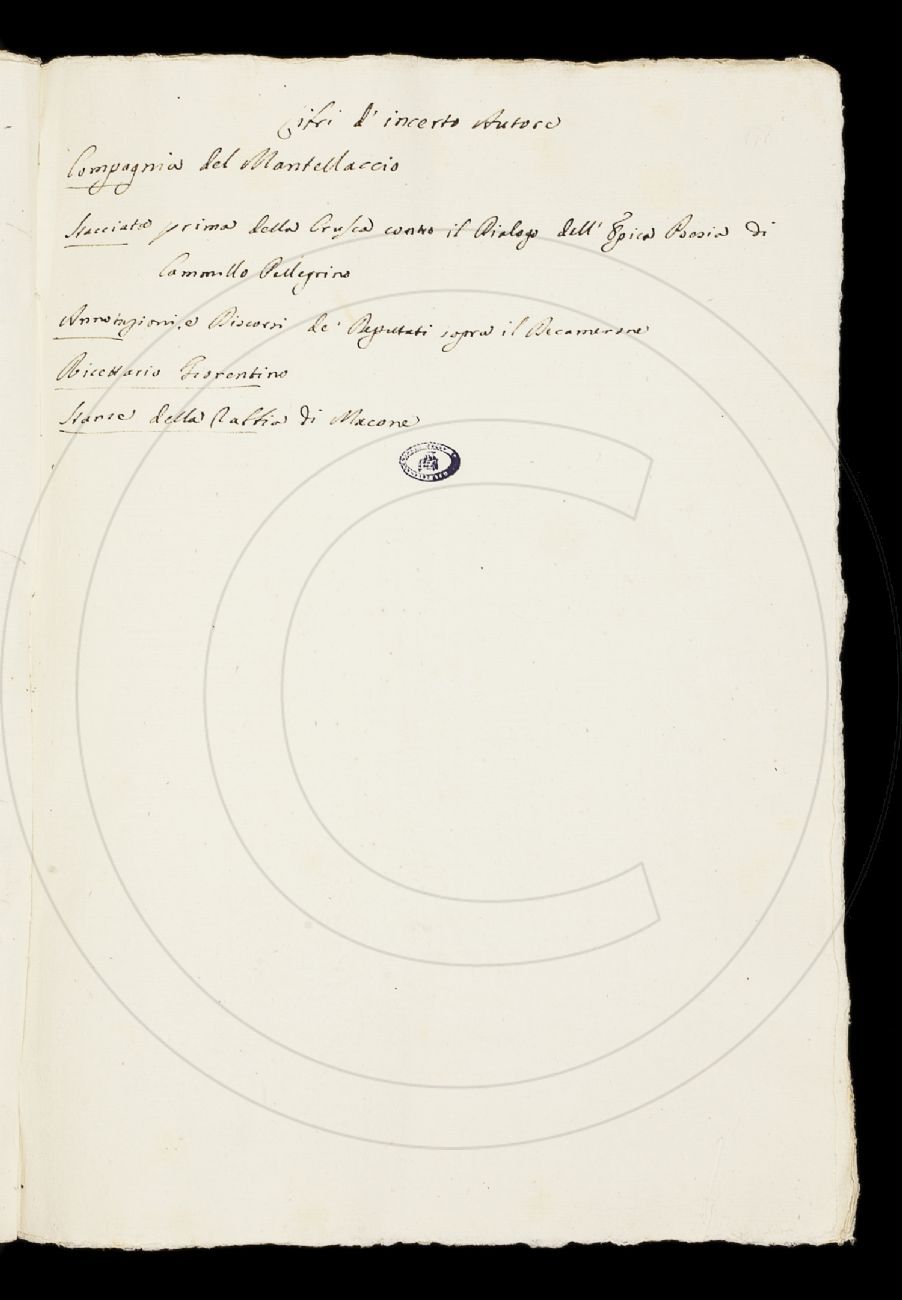 Libri d' incerto Autore
Compagnia del Mantellaccio
Stacciata prima della Crusca contro il Dialogo dell' Epica Poesia di
Cammillo Pellegrino
Annotazioni, e Discorsi de' Deputati sopra il Decamerone
Ricettario Fiorentino
Stanze della Rabbia di Macone